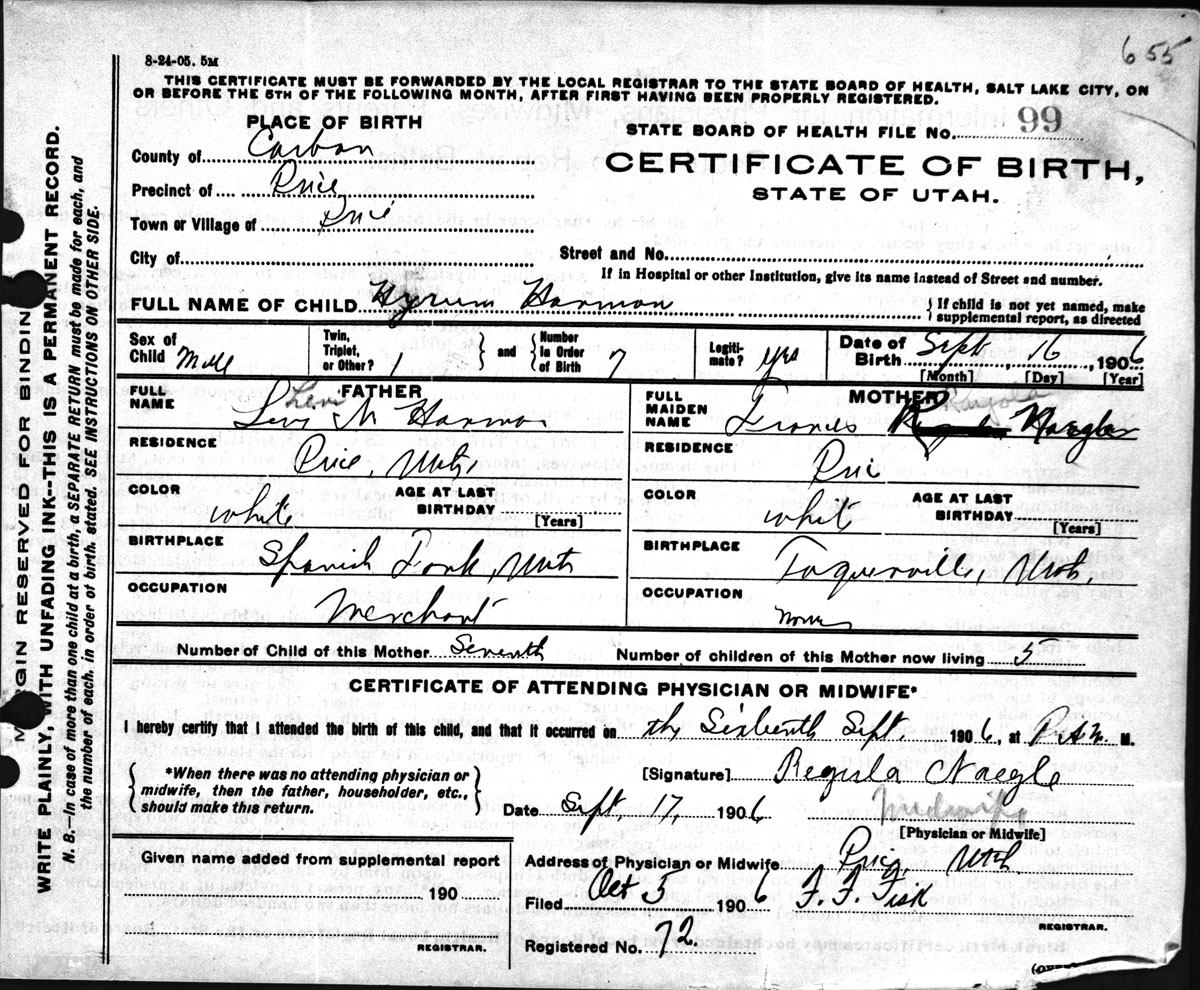 655
8-24-05. 5M
THIS CERTIFICATE MUST BE FORWARDED BY THE LOCAL REGISTRAR TO THE STATE BOARD OF HEALTH, SALT LAKE CITY, ON
OR BEFORE THE 5TH OF THE FOLLOWING MONTH, AFTER FIRST HAVING BEEN PROPERLY REGISTERED.
PLACE OF BIRTH
County of Carbon
Precinct of Price
Town or Village of Price
City of
STATE BOARD OF HEALTH FILE NO. 99
CERTIFICATE OF BIRTH,
STATE OF UTAH.
Street and No.
If in Hospital or other Institution, give its name instead of Street and number.
FULL NAME OF CHILD Hyrum Harmon
{If child is not yet named, make
supplemental report, as directed
Sex of Child Male
Twin, Triplet, or Other? 1
and
Number in Order of Birth 7
Legiti-mate? yes
Date of Birth Sept, 16, 1906
[Month] [Day] [Year]
FATHER
Levi
FULL NAME Levi M Harmon
RESIDENCE
Price, Utah
COLOR white
AGE AT LAST BIRTHDAY
[Years]
BIRTHPLACE
Spanish Fork, Utah
OCCUPATION
Merchant
MOTHER
FULL MAIDEN NAME Frances Naegle
RESIDENCE
Price
COLOR white
AGE AT LAST BIRTHDAY
[Years]
BIRTHPLACE
Toquerville, Utah,
OCCUPATION
None
Number of Child of this Mother Seventh
Number of children of this Mother now living 5
CERTIFICATE OF ATTENDING PHYSICIAN OR MIDWIFE*
I hereby certify that I attended the birth of this child, and that it occurred on the Sixteenth Sept. 1906, at M.
{*When there was no attending physician or
midwife, then the father, householder, etc.,
should make this return.}
[Signature] Regula Naegle
Date Sept, 17, 1906
Midwife
[Physician or Midwife]
Given name added from supplemental report
190
REGISTRAR.
Address of Physician or Midwife Price, Utah
Filed Oct 5 1906 F. F. Fisk
REGISTRAR.
Registered No. 72.
MARGIN RESERVED FOR BINDING
WRITE PLAINLY, WITH UNFADING INK--THIS IS A PERMANENT RECORD.
N. B.--In case of more than one child at a birth, a SEPARATE RETURN must be made for each, and
the number of each, in order of birth, stated. SEE INSTRUCTIONS ON OTHER SIDE.